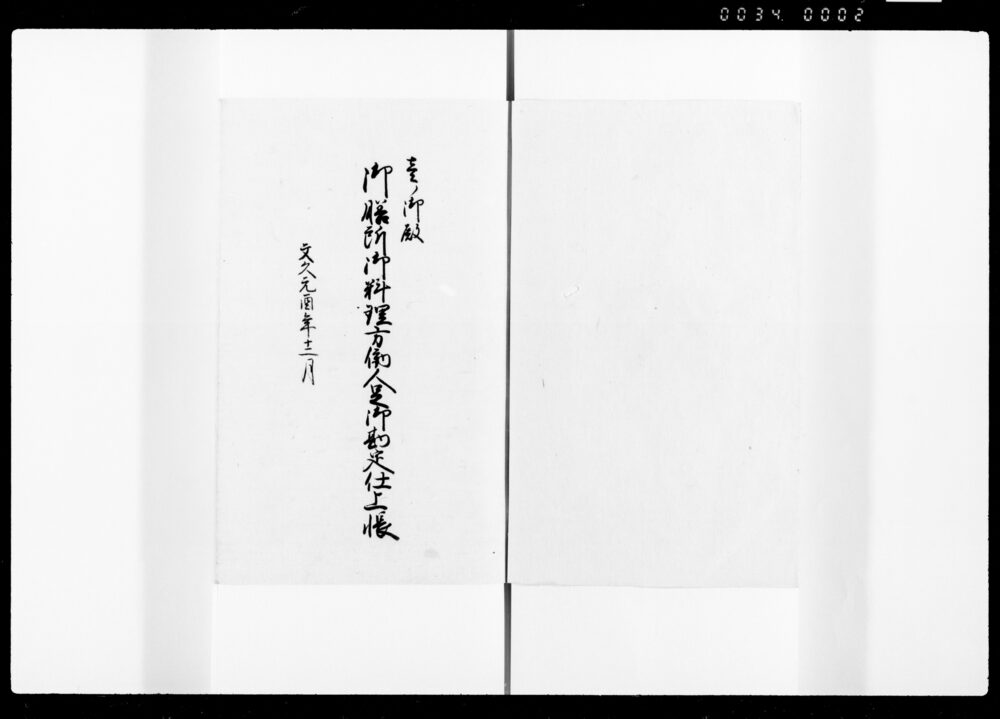 0034 0002
壱ノ御殿
御膳所御料理方働人足御勘定仕上帳
文久元酉年十二月